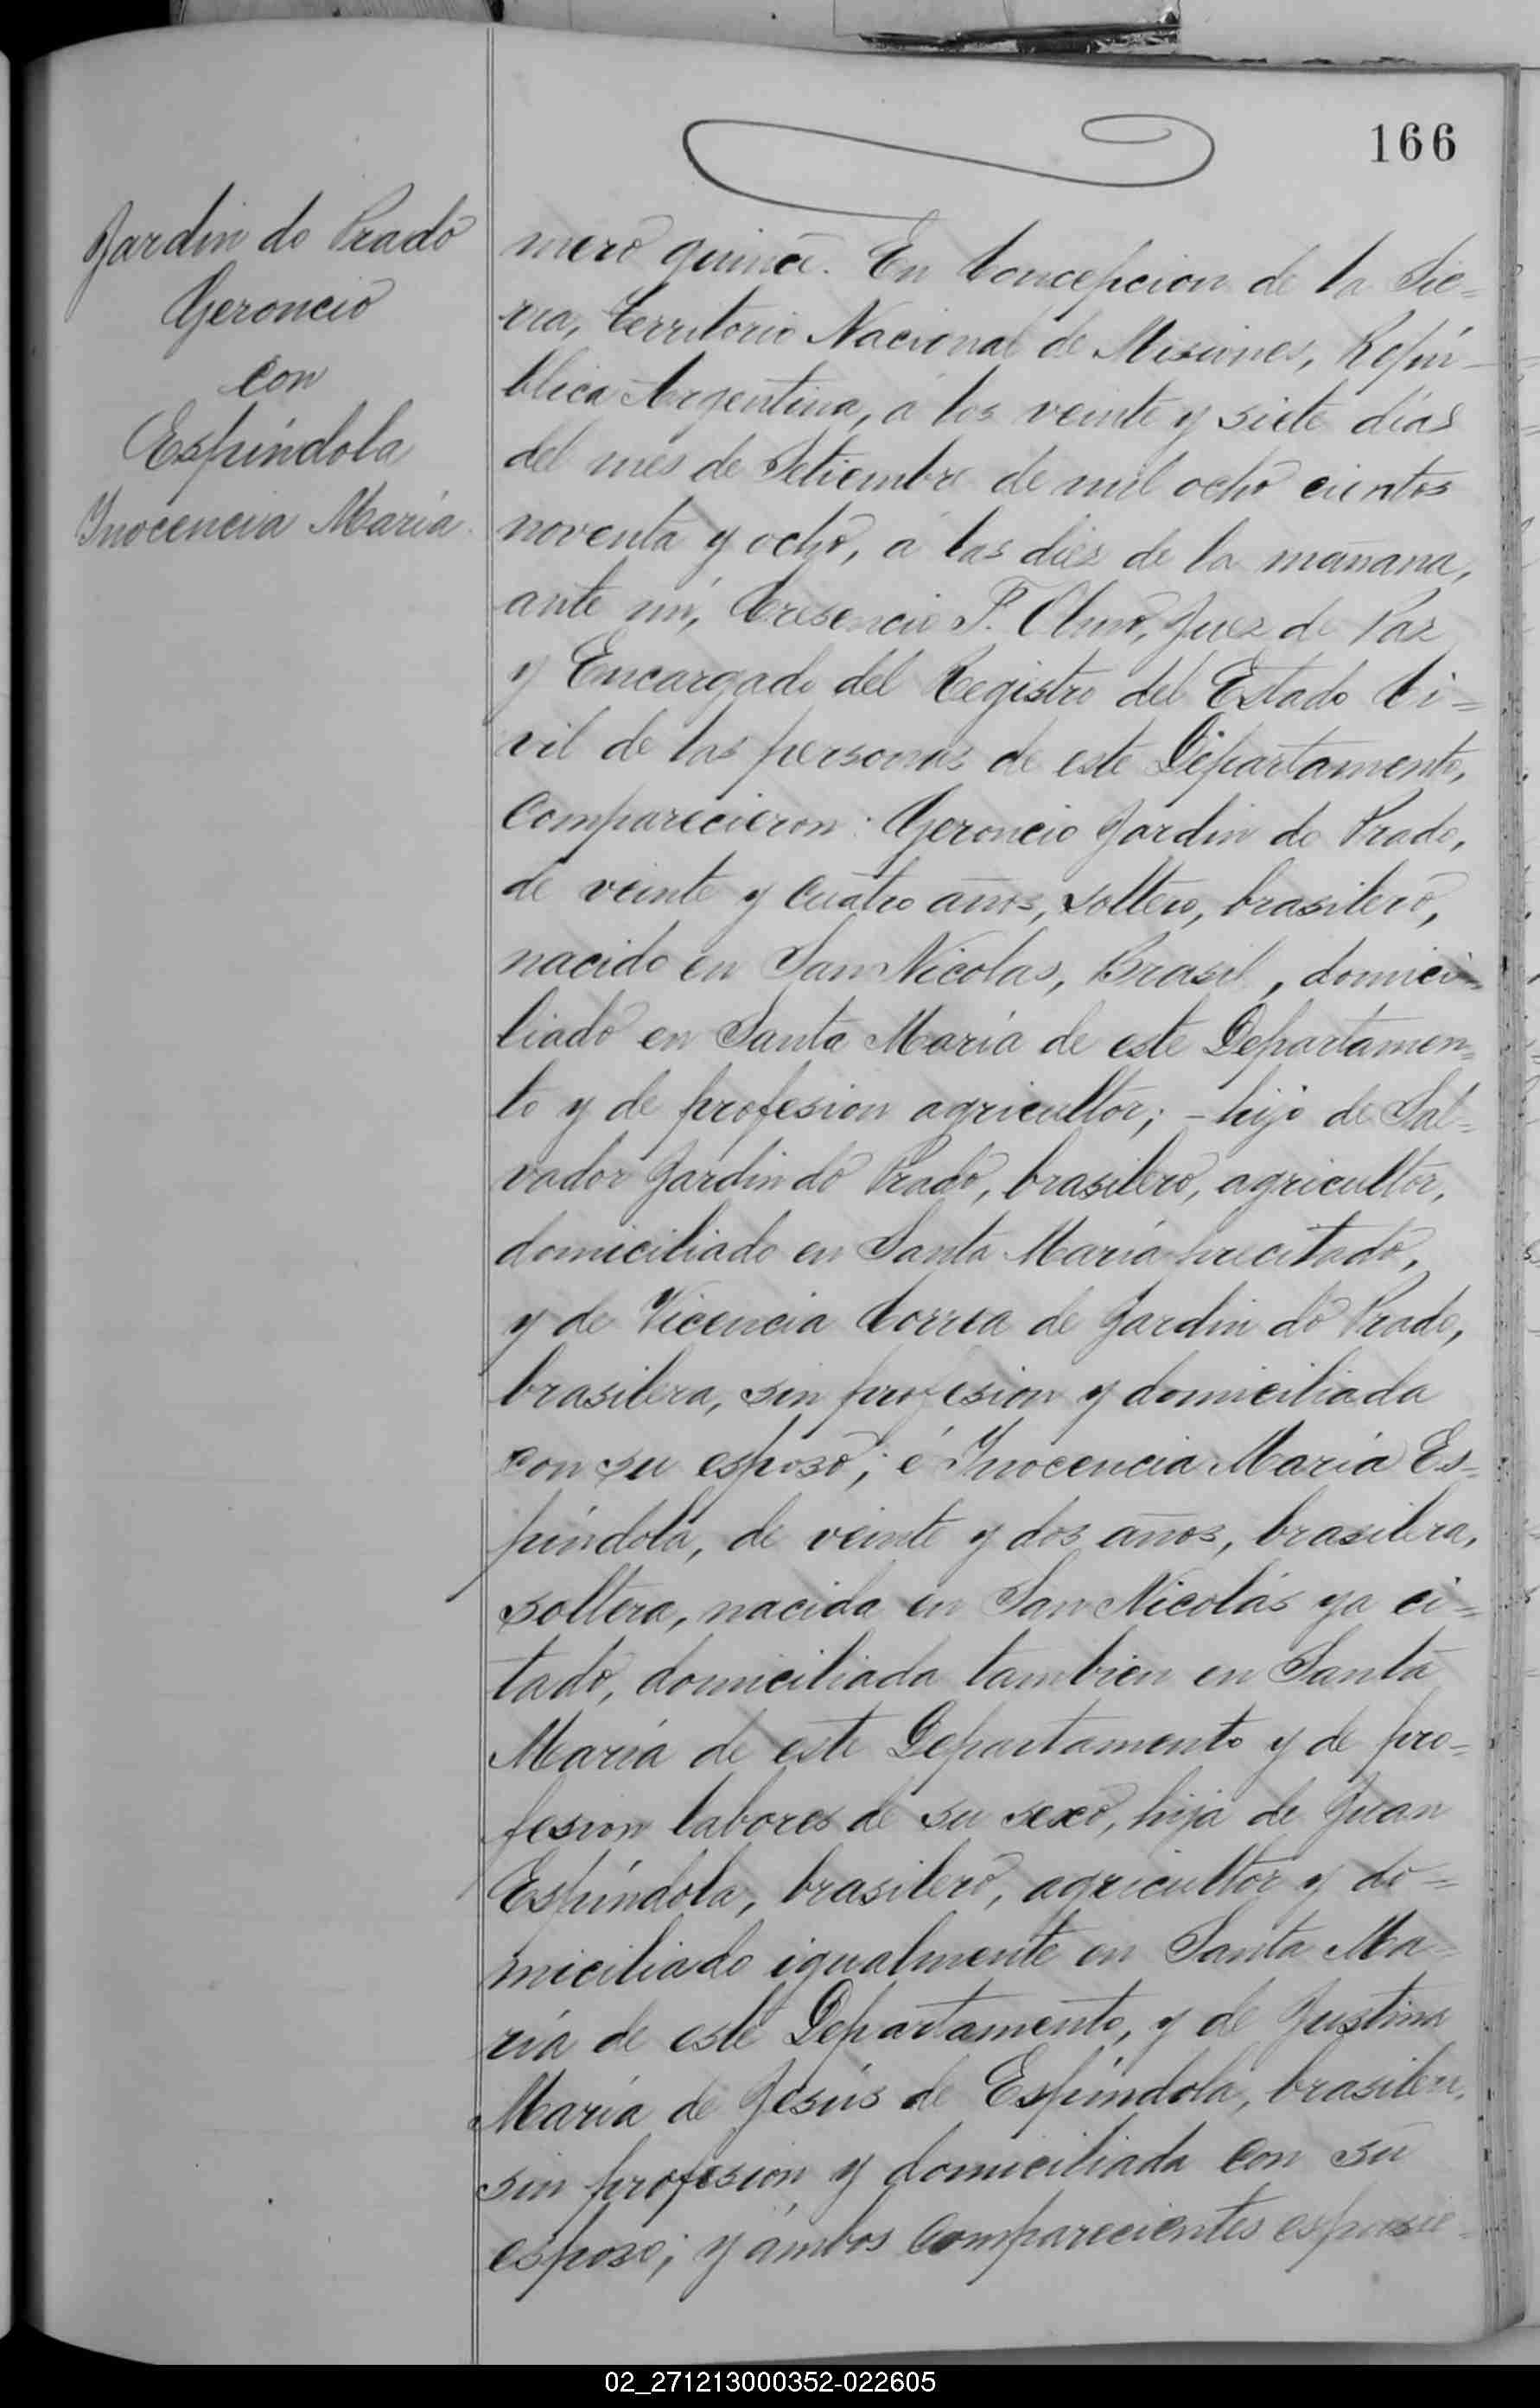 166
Jardin do Prado
Geroncio
con
Espíndola
Inocencia María
mero quince. En Concepcion de la Sie=
rra, Territorio Nacional de Misiones, Repú-
blica Argentina, á los veinte y siete días
del mes de Setiembre de mil ocho cientos
noventa y ocho, á las diez de la mañana,
ante mí, Cresencio F. Olmo, Juez de Paz
y Encargado del Registro del Estado Ci=
vil de las personas de este Departamento,
comparecieron: Geroncio Jardin do Prado,
de veinte y cuatro años, soltero, brasilero,
nacido en San Nicolas, Brasil, domici=
liado en Santa María de este Departamen=
to y de profesion agricultor; - hijo de Sal=
vador Jardin do Prado, brasilero, agricultor,
domiciliado en Santa María precitado,
y de Vicencia Correa de Jardin do Prado,
brasilera, sin profesion y domiciliada
con su esposo; é Inocencia María Es=
píndola, de veinte y dos años, brasilera,
soltera, nacida en San Nicolás ya ci=
tado, domiciliada tambien en Santa
María de este Departamento y de pro=
fesion labores de su sexo, hija de Juan
Espíndola, brasilero, agricultor y do=
miciliado igualmente en Santa Ma=
ría de este Departamento, y de Justina
María de Jesús de Espíndola, brasilera,
sin profesion y domiciliada con su
esposo; y ámbos comparecientes espusie=
02_271213000352-022605